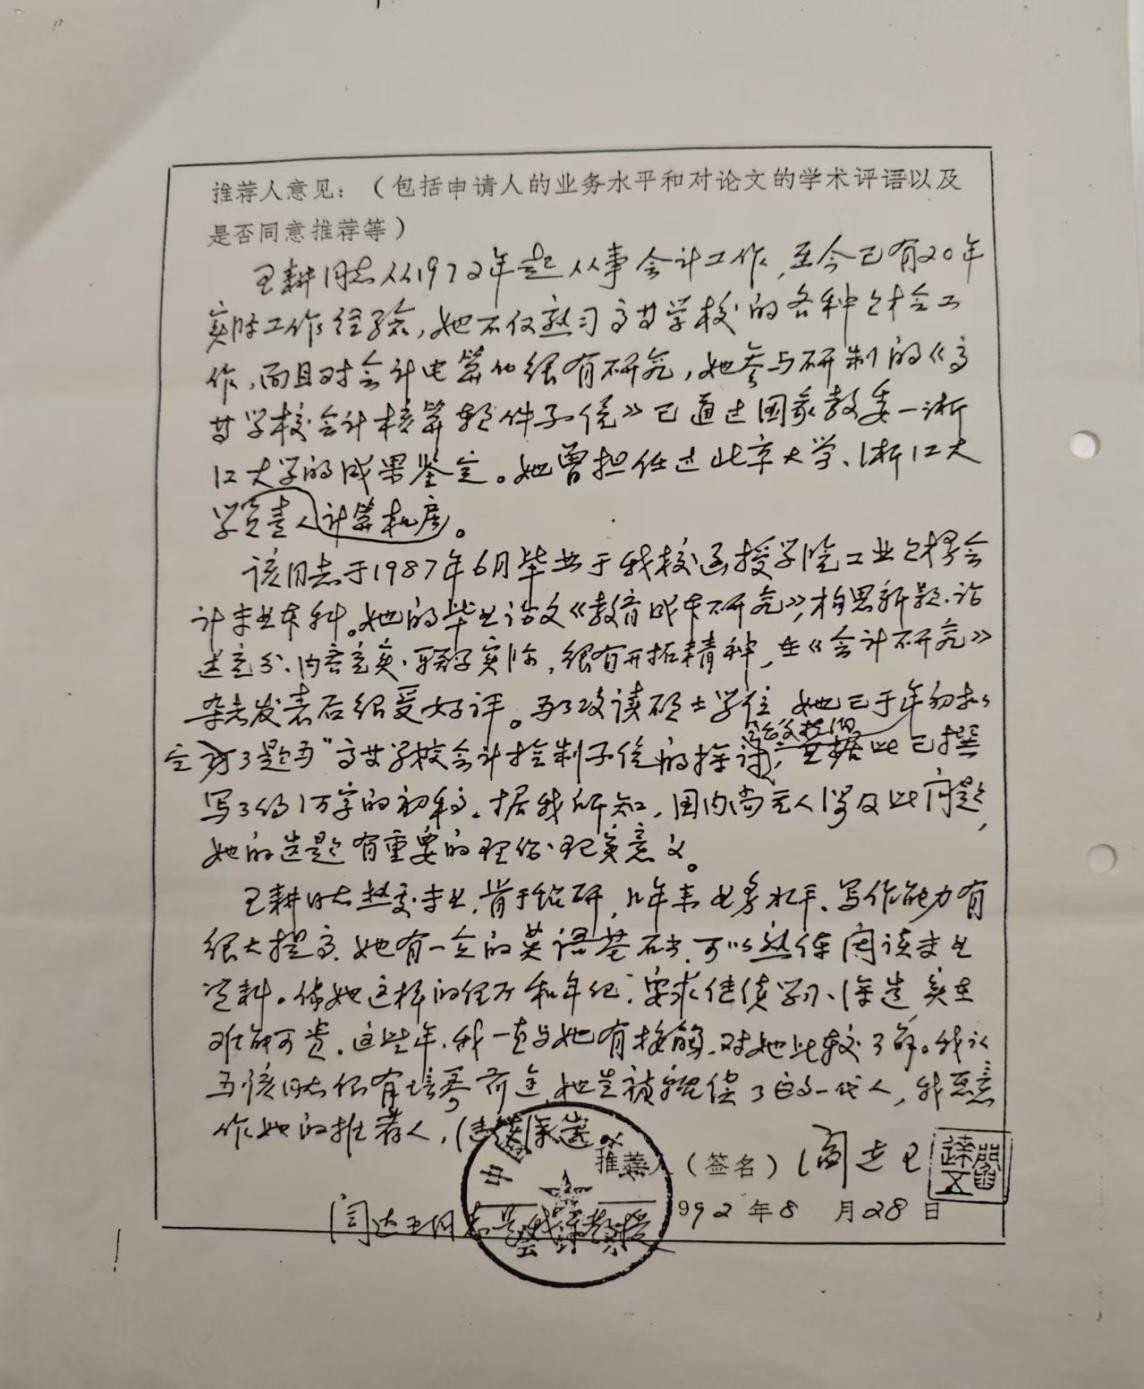 推荐人意见：（包括申请人的业务水平和对论文的学术评语以及
是否同意推荐等）
王耕同志从1972年起从事会计工作，至今已有20年
实际工作经验，她不仅熟习高等学校的各种财会工
作，而且对会计电算化很有研究，她参与研制的《高
等学校会计核算软件系统》已通过国家教委一浙
江大学的成果鉴定。她曾担任过北京大学、浙江大
学负责人计算机房。
该同志于1987年6月毕业于我校函授学院工业财务会
计专业本科。她的毕业论文《教育成本研究》，构思新颖、论
述充分、内容充实、联系实际，很有开拓精神，在《会计研究》
杂志发表后很受好评。为了攻读硕士学位，她已于年初
了题为"高等学校会计控制系统的探讨，论文提纲 并据此已撰
写了约1万字的初稿。据我所知，国内尚无人涉及此问题，
她的选题有重要的理论、现实意义。
王耕同志热爱专业，肯于钻研，几年来业务水平、写作能力有
很大提高，她有一定的英语基础，可以熟练阅读专业
资料。像她这样的经历和年纪，要求继续学习、深造实在
难能可贵。这些年，我一直与她有接触，对她比较了解。我认
为该同志很有培养前途，她是被耽误了的一代人，我愿意
作她的推荐人，
推荐人（签名）阎达五
阎达五同志是我系教授
992年8月28日
中国
会计系
阎达五